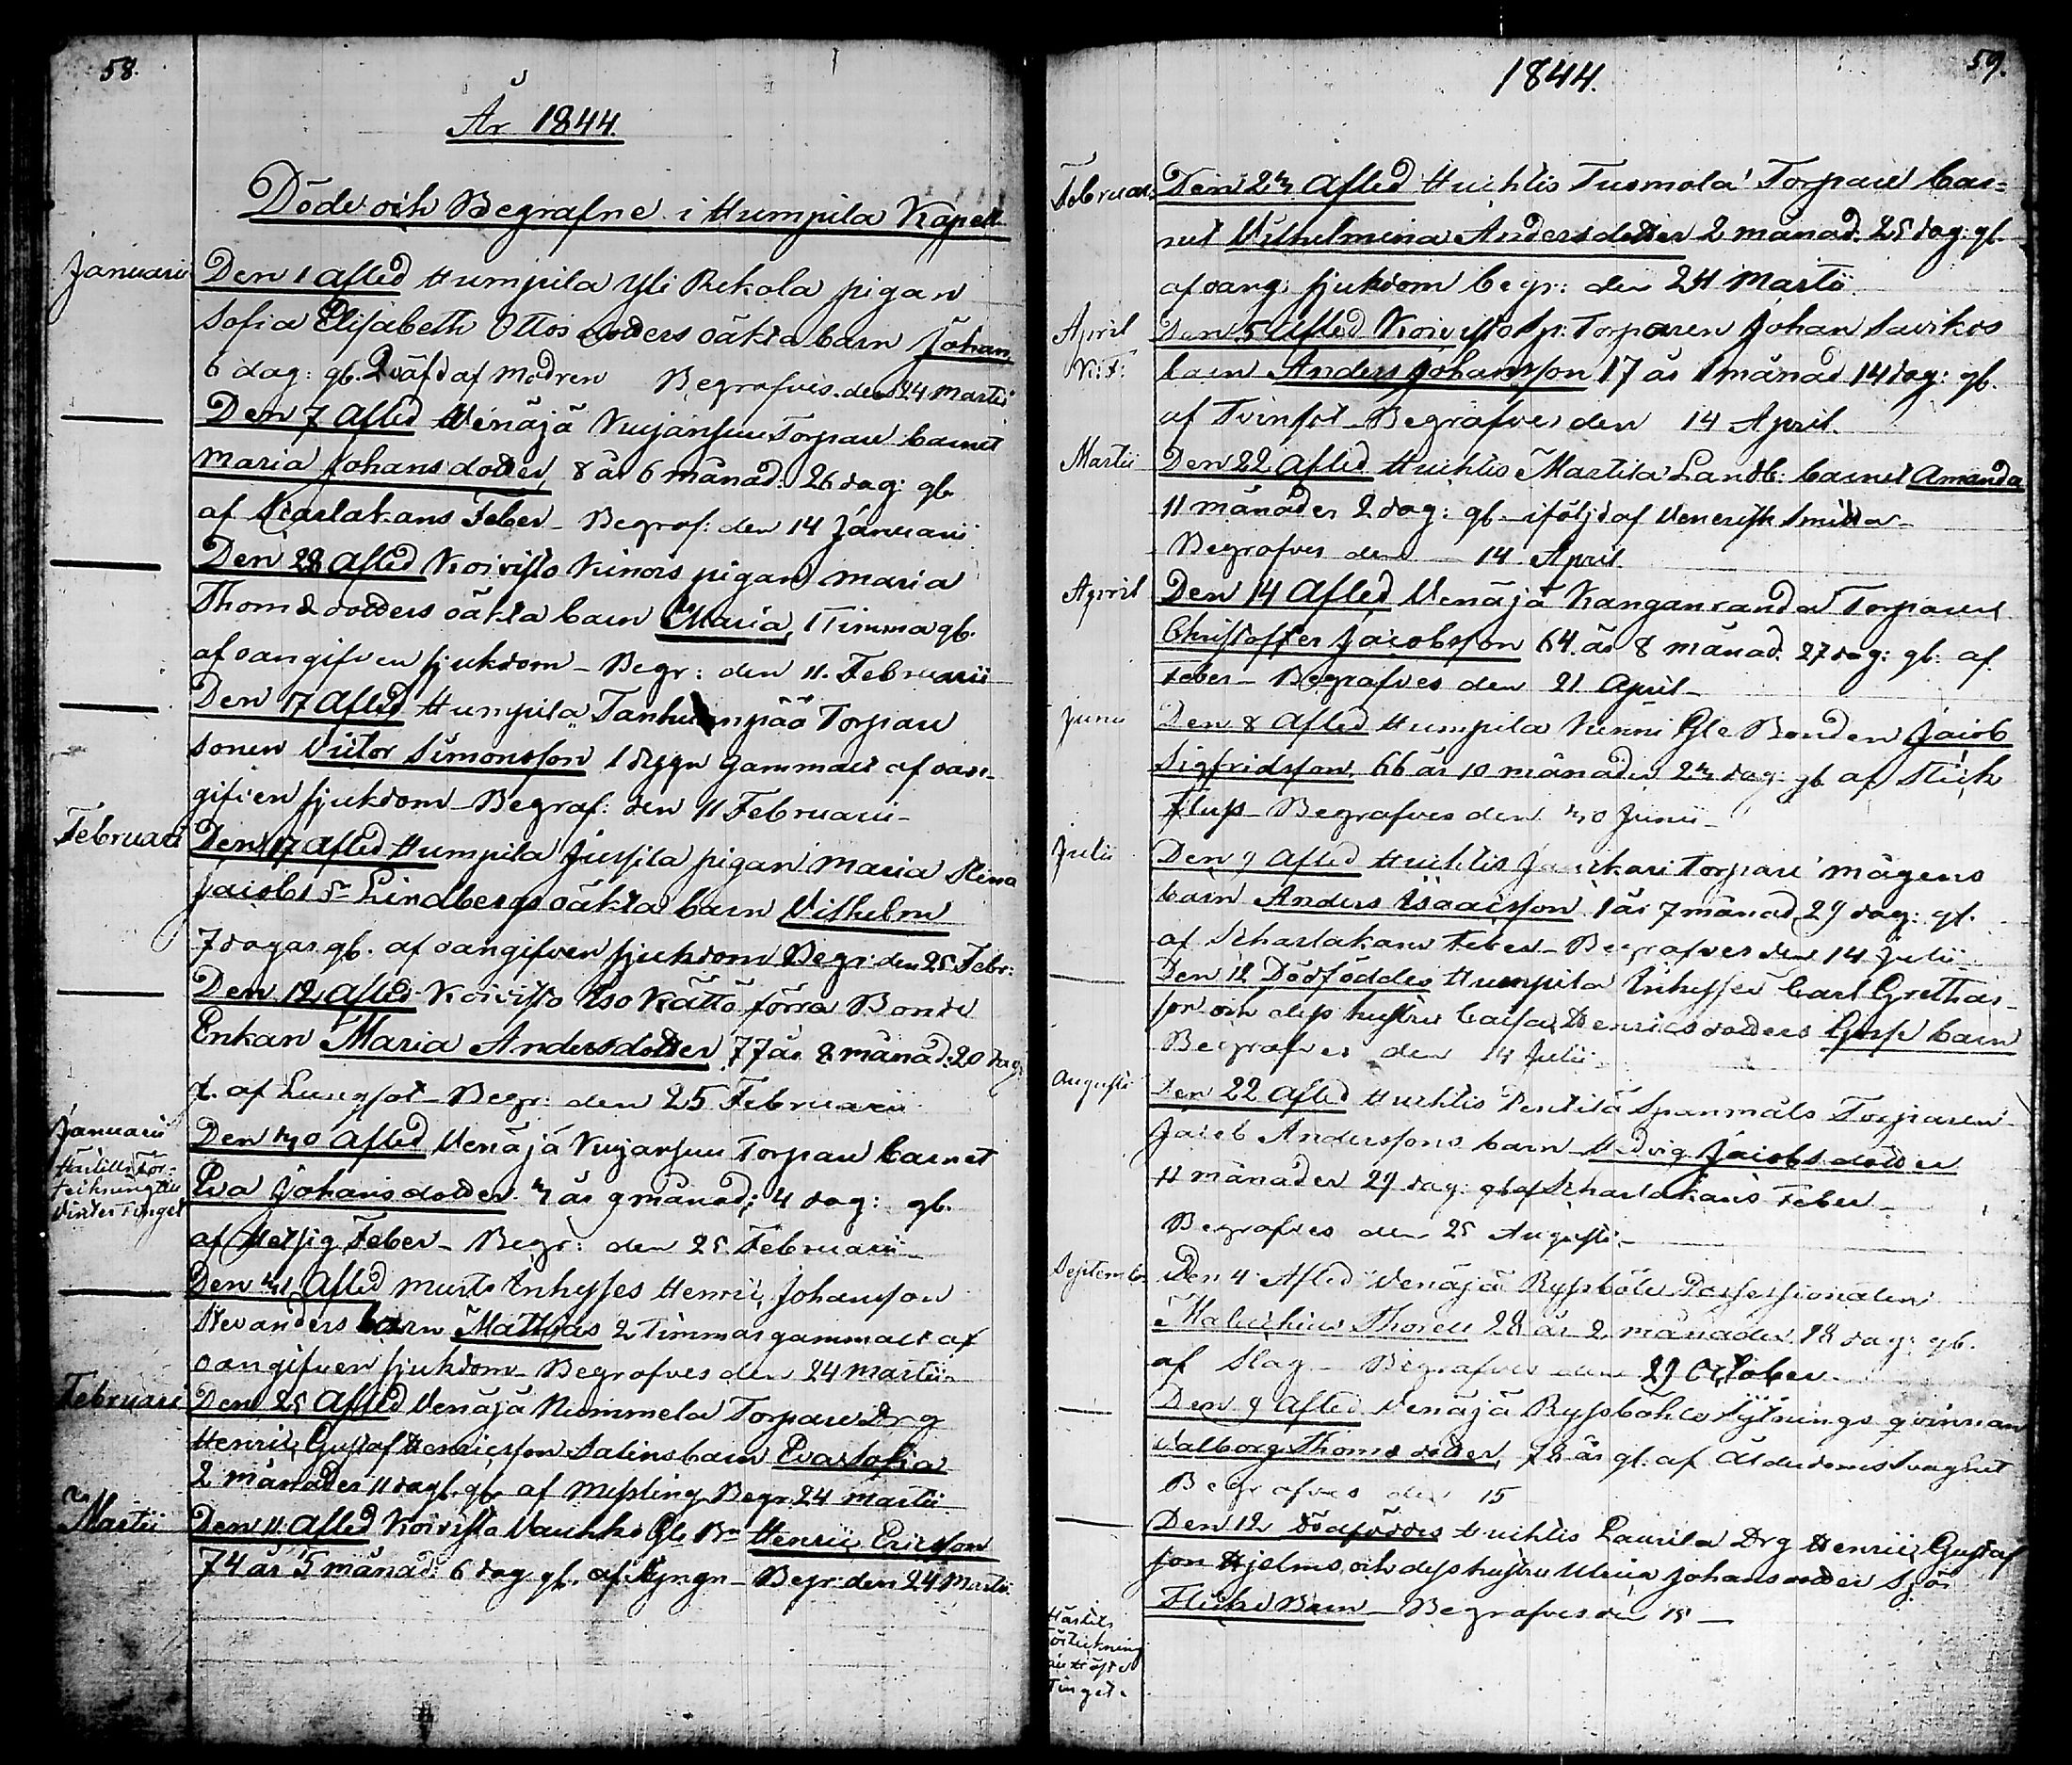 58.
År 1844.
Döde och Begrafne i Humpila Kapell
Januarii Den 1 Afled Humpila Yli Rekola pigan
Sofia Elisabeth Ottos dotters oäkta barn Johan
6 dag: gl. Qväfd af Modren Begrafves den 24 Martii
Den 7 Afled Venäjä Kujansuu Torpare barnet
Maria Johansdotter, 8 år 6 månad: 26 dag: gl.
af Skarlakans Feber - Begraf: den 14 Januarii
Den 28 Afled Koivisto pigan Maria
Thomæ dotters oäkta barn Maria, 1 Timma gl.
af oangifven sjukdom - Begr: den 11. Februarii
Den 17 Afled Humpila Torpare
sonen Victor Simonsson 1 dygn gammalt af oan-
gifven sjukdom - Begraf: den 11 Februarii -
Februarii Den 17 Afled Humpila Jussila pigan Maria Stina
Jacobs dr Lindbergs oäkta barn Vilhelm
7 dagar gl. af oangifven sjukdom Begr: den 25 Febr:
Den 12 Afled Koivisto Iso Kättö förra Bonde
Enkan Maria Andersdotter 77 år 8 månad: 20 dag:
gl. af Lungsot - Begr: den 25 Februarii
Januarii Den 30 Afled Venäjä Kujansuu Torpare barnet
Härtills för-
teckning till
Vinter Tinget
Eva Johansdotter 3 år 9 månad: 4 dag: gl.
af Hetsig Feber - Begr: den 25 Februarii -
Den 31 Afled Murto Inhyses Henric Johansson
barn Mathias 2 Timmar gammalt af
oangifven sjukdom - Begrafves den 24 Martii -
Februarii Den 25 Afled Venäjä Nummela Torpare Drg
Henric Gustaf Henricsson Salins barn Eva Sofia
2 månader 11 dag: gl. af Messling Begr 24 Martii
Martii Den 11 Afled Koivisto Gle Bn Henric Ericsson
74 år 5 månad: 6 dag gl. af Styngn - Begr: den 24 Martii
1844.
59.
Februarii Den 23 Afled Huhtis Tuomola Torpare bar-
net Vilhelmina Andersdotter 2 månad. 25 dag: gl.
af oang: sjukdom begr: den 24 Martii
April Den 5 Afled Koivisto Sp: Torparen Johan Savikos
barn Anders Johansson 17 år 1 månad 14 dag: gl.
af Tvinsot - Begrafves den 14 April.
Martii Den 22 Afled Huhtis Martila Landb: barnet Amanda
11 månader 2 dag: gl. - ifölgd af Venerisk Smitta -
Begrafves den 14 April
April Den 14 Afled Venäjä Kanganranda Torparen
Christoffer Jacobsson 64. år 8 månad. 27 dag: gl: af
Feber - Begrafves den 21 April -
Junii Den 8 Afled Humpila Gle Bonden Jacob
Sigfridsson, 66 år 10 månader 23 dag: gl af Stick
Fluss - Begrafves den 30 Junii -
Julii Den 9 Afled Huhtis Torpare mågens
barn Anders Isaacsson 1 år 7 månad 29 dag: gl.
af Scharlakans Feber - Begrafves den 14 Julii -
Den 12 Dödföddes Humpila Inhyses Carl Grethas-
son och dess hustru Caisa Henricsdotters Gosse barn
Begrafves den 14 Julii -
Augusti Den 22 Afled Huhtis Penttilä Spanmåls Torparen
Jacob Anderssons barn Hedvig Jacobsdotter
11 månader 29 dag: gl af Scharlakans Feber -
Begrafves den 25 Augusti -
Septemb. Den 4 Afled Venäjä Ryssböle Possessionaten
Malachias Thoreu 28 år 2 månader 18 dag: gl.
af Slag - Begrafves den 29 October -
Den 9 Afled Venäjä Ryssböhle Sytnings qvinnan
Valborg Thomæ dotter, 78 år gl. af Ålderdoms Svaghet
Begrafves den 15
Den 12 Dödföddes Huhtis Laurila Drg Henric Gustaf
son Hjelms och dess hustru Ulrica Johansdotter Sjös
Flicke Barn - Begrafves den 15 -
Härtils
förteckning
till Höste
Tinget.